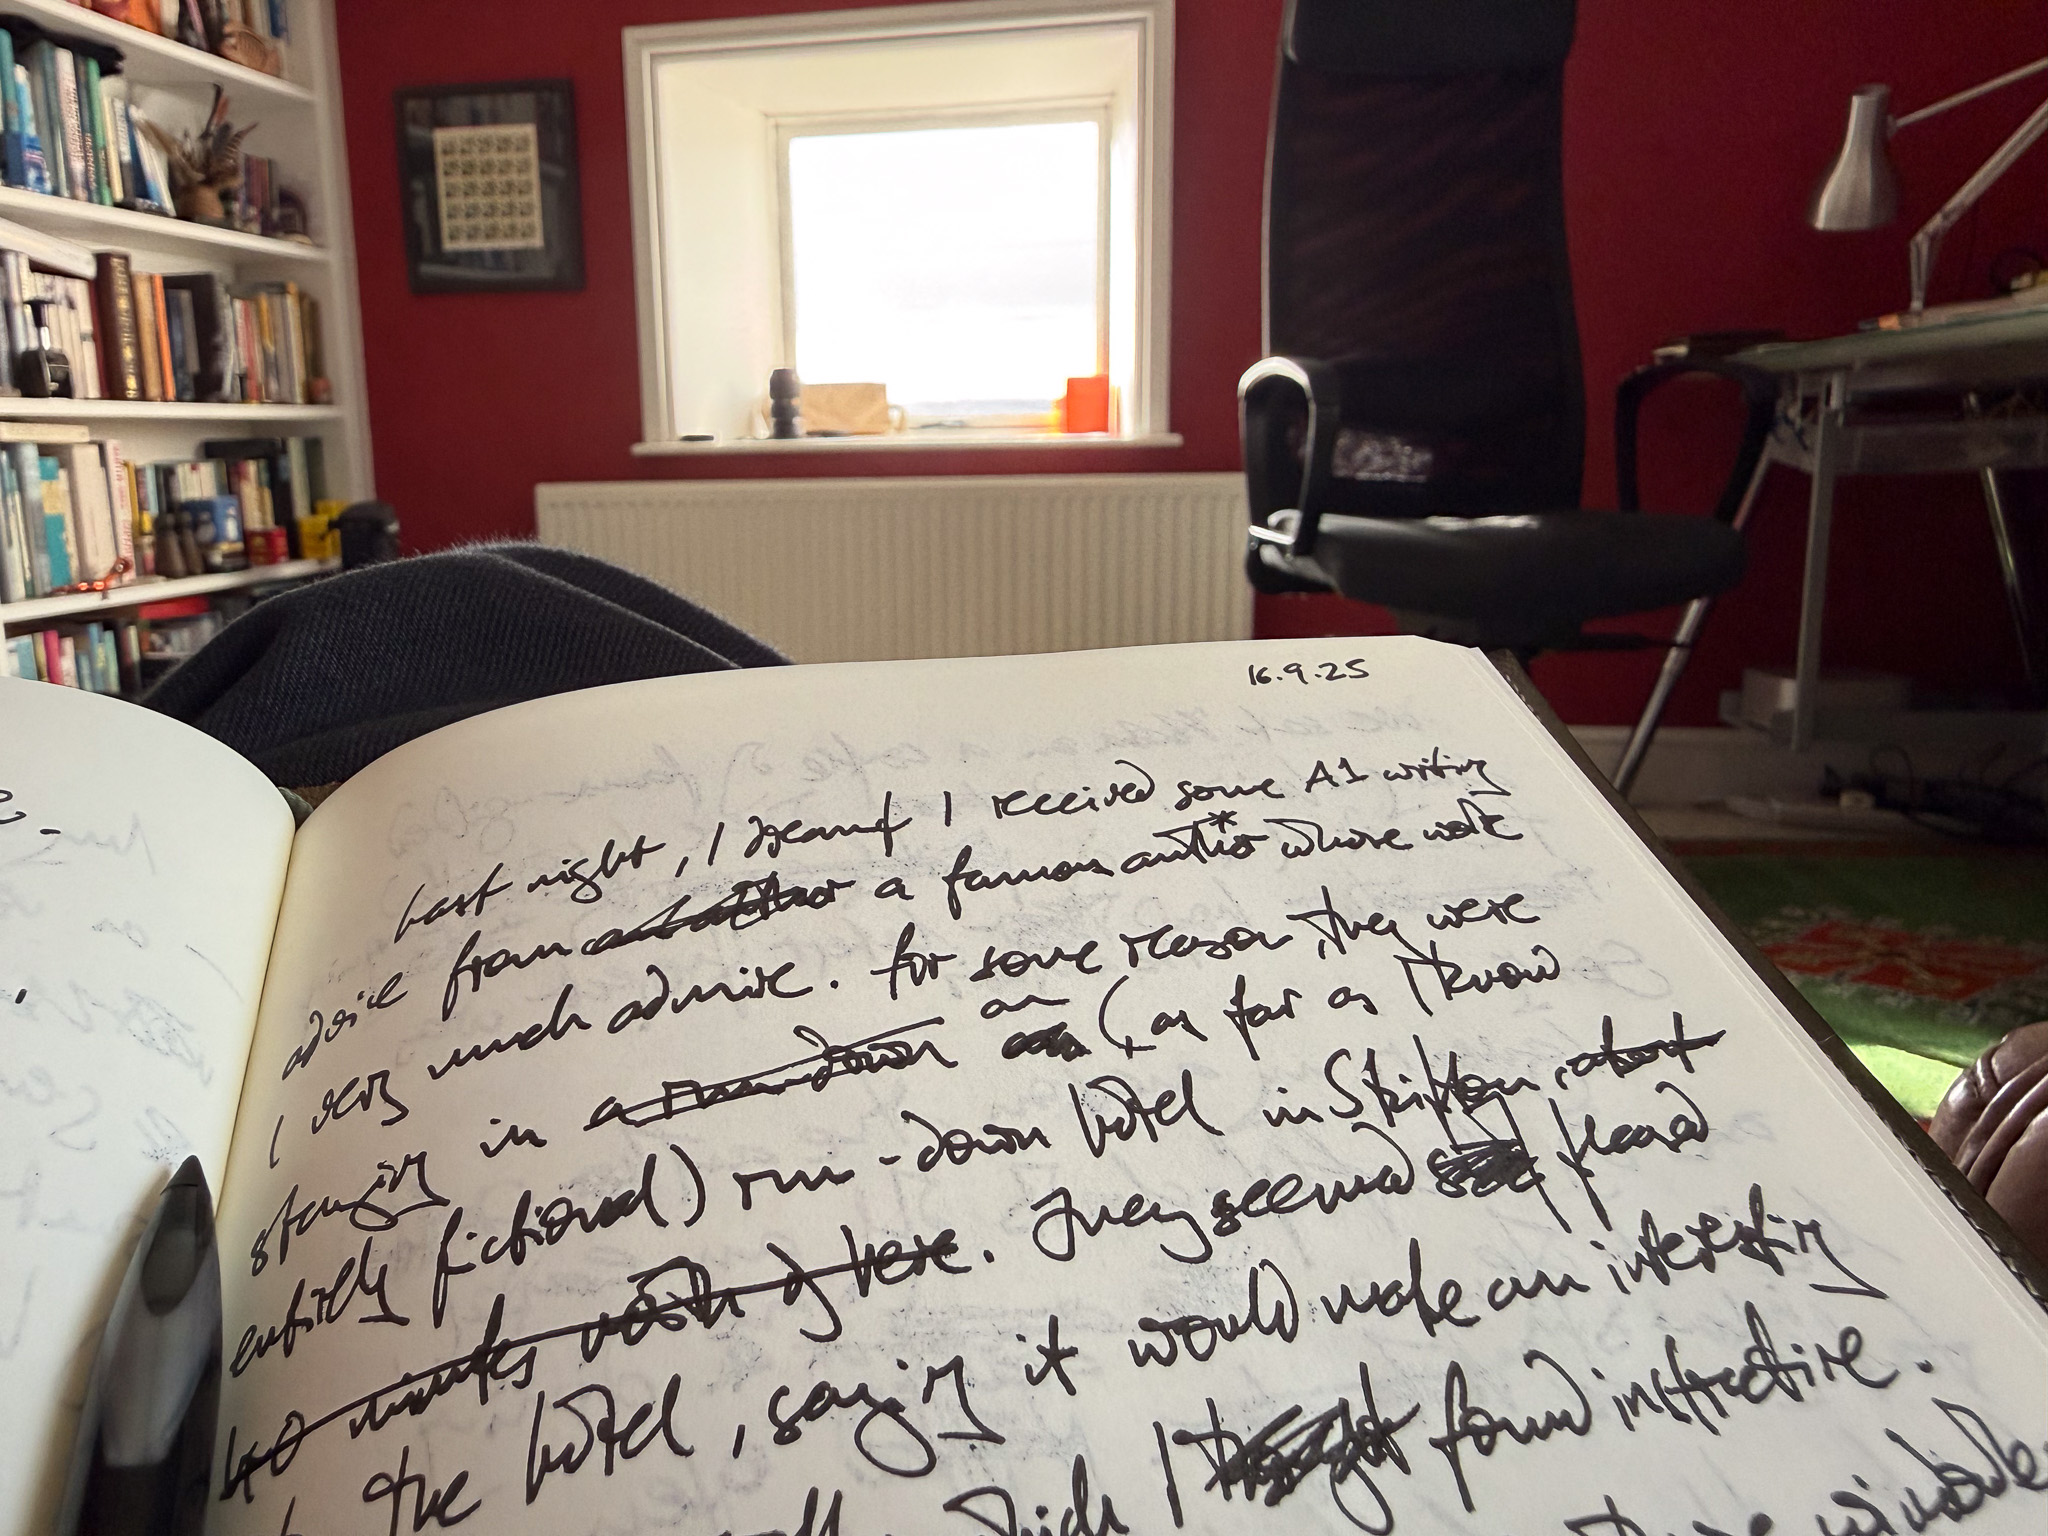 16.9.25
Last night, I dreamt I received some A1 writing
advice from a famous author* whose work
I very much admire. For some reason, they were
staying in a run-down an (as far as I know
entirely fictional) run-down hotel in Skipton, about
40 minutes north of here. They seemed pleased
the hotel, saying it would make an interesting
which I thought found instructive.